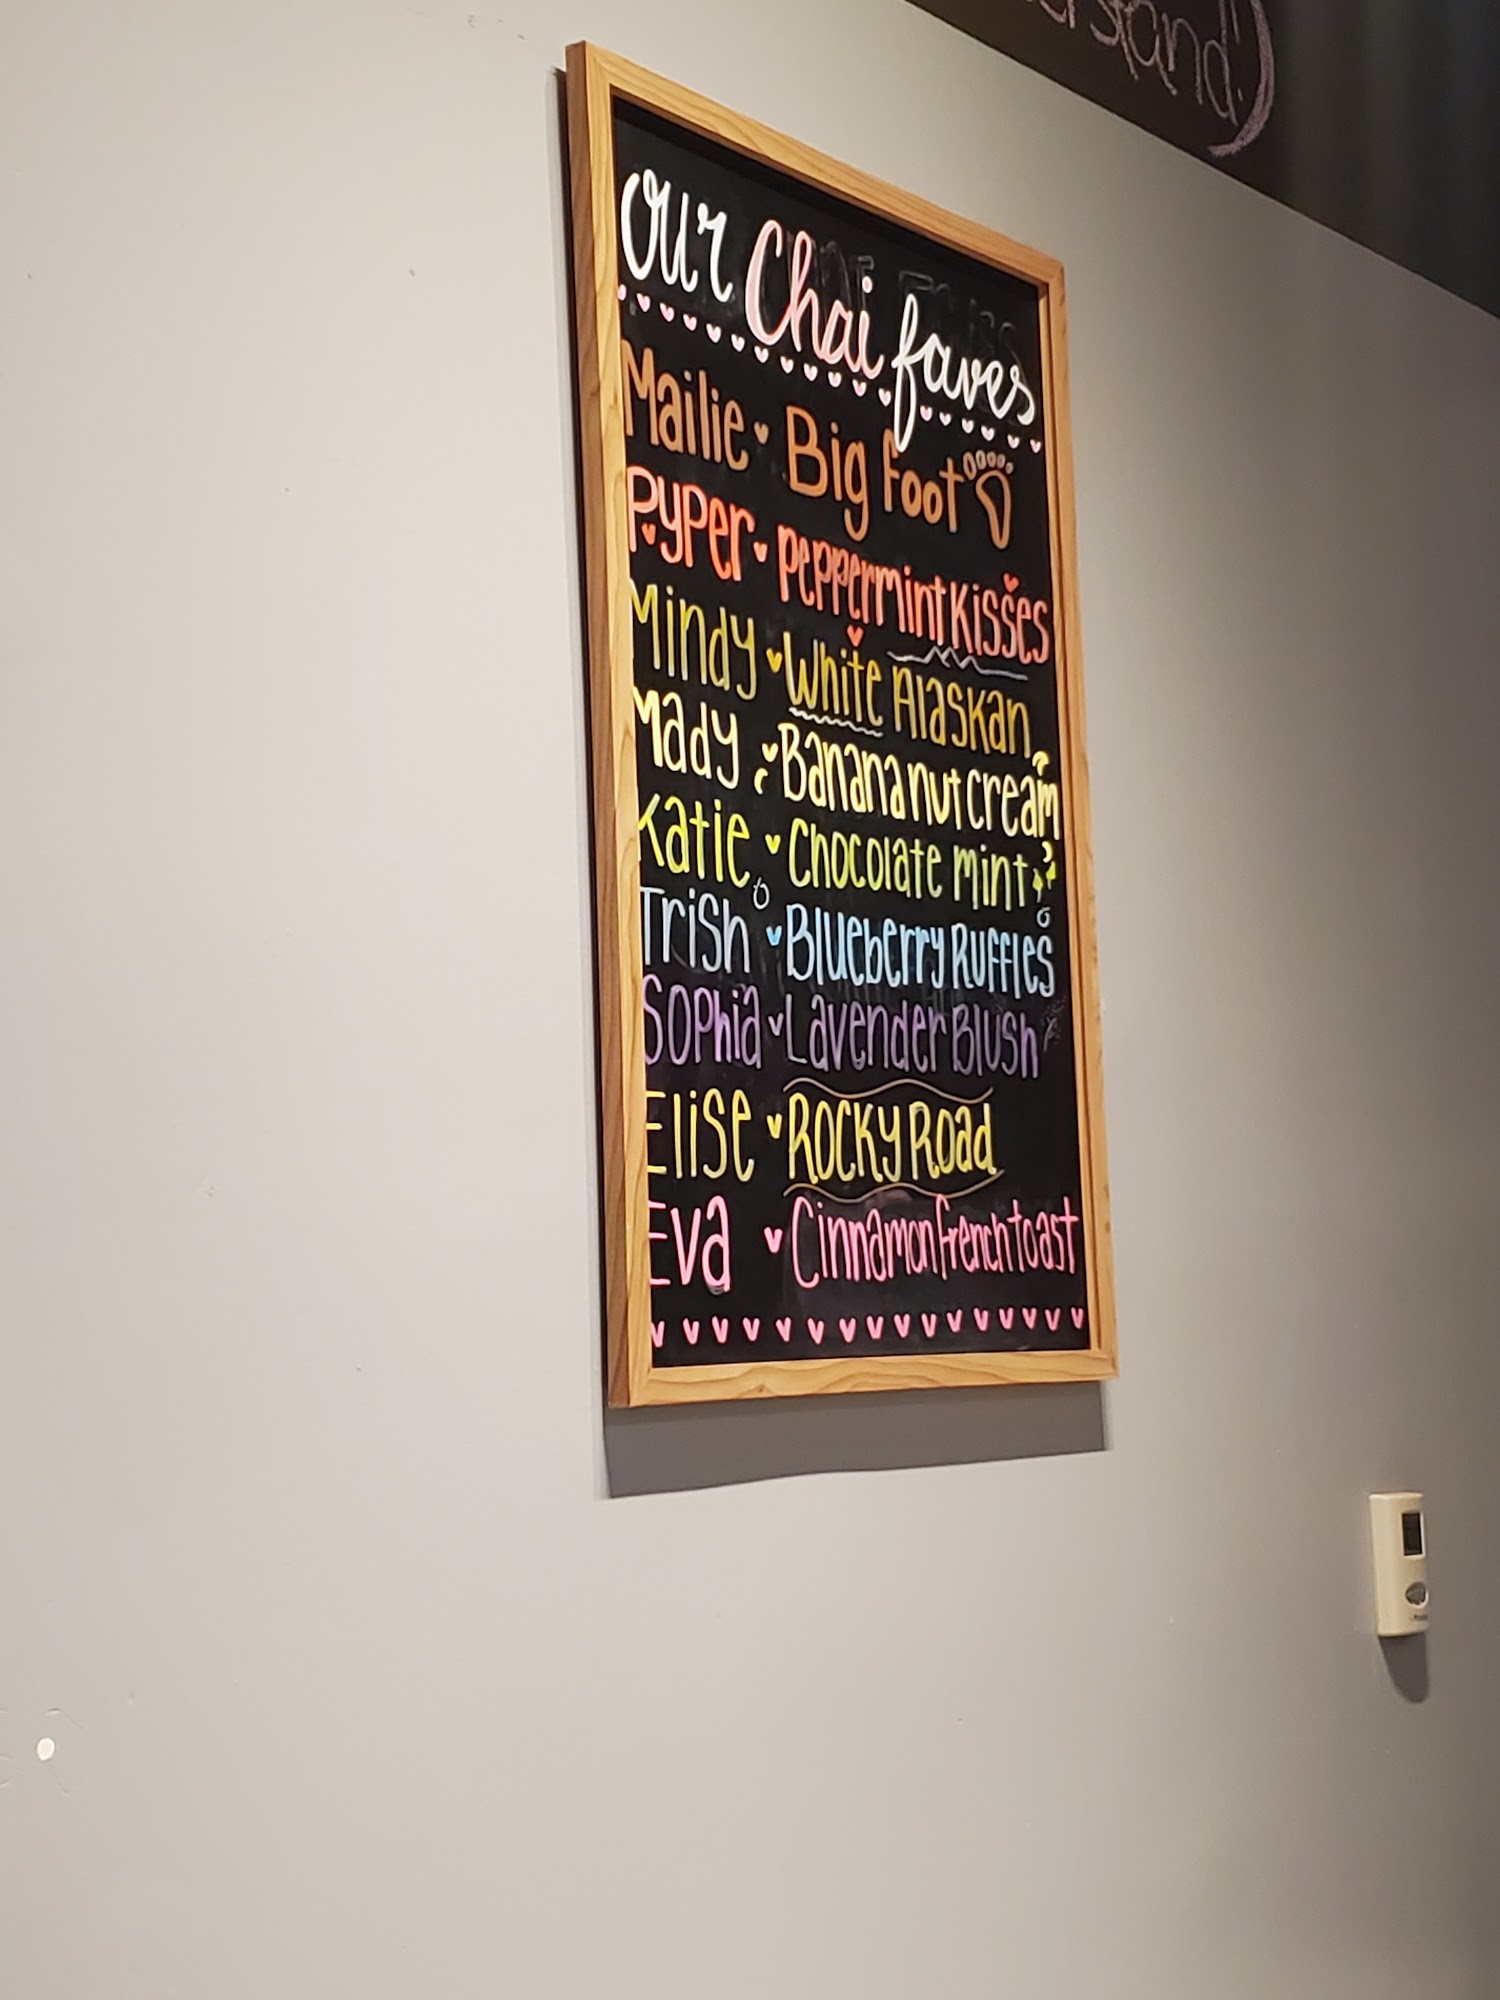 erstand!)
our Chai faves
Mailie Big foot
Pyper peppermint Kisses
Mindy White Alaskan
Mady Banana nut cream
Katie Chocolate mint
Trish Blueberry Ruffles
Sophia Lavender Blush
Elise Rocky Road
Eva Cinnamon french toast